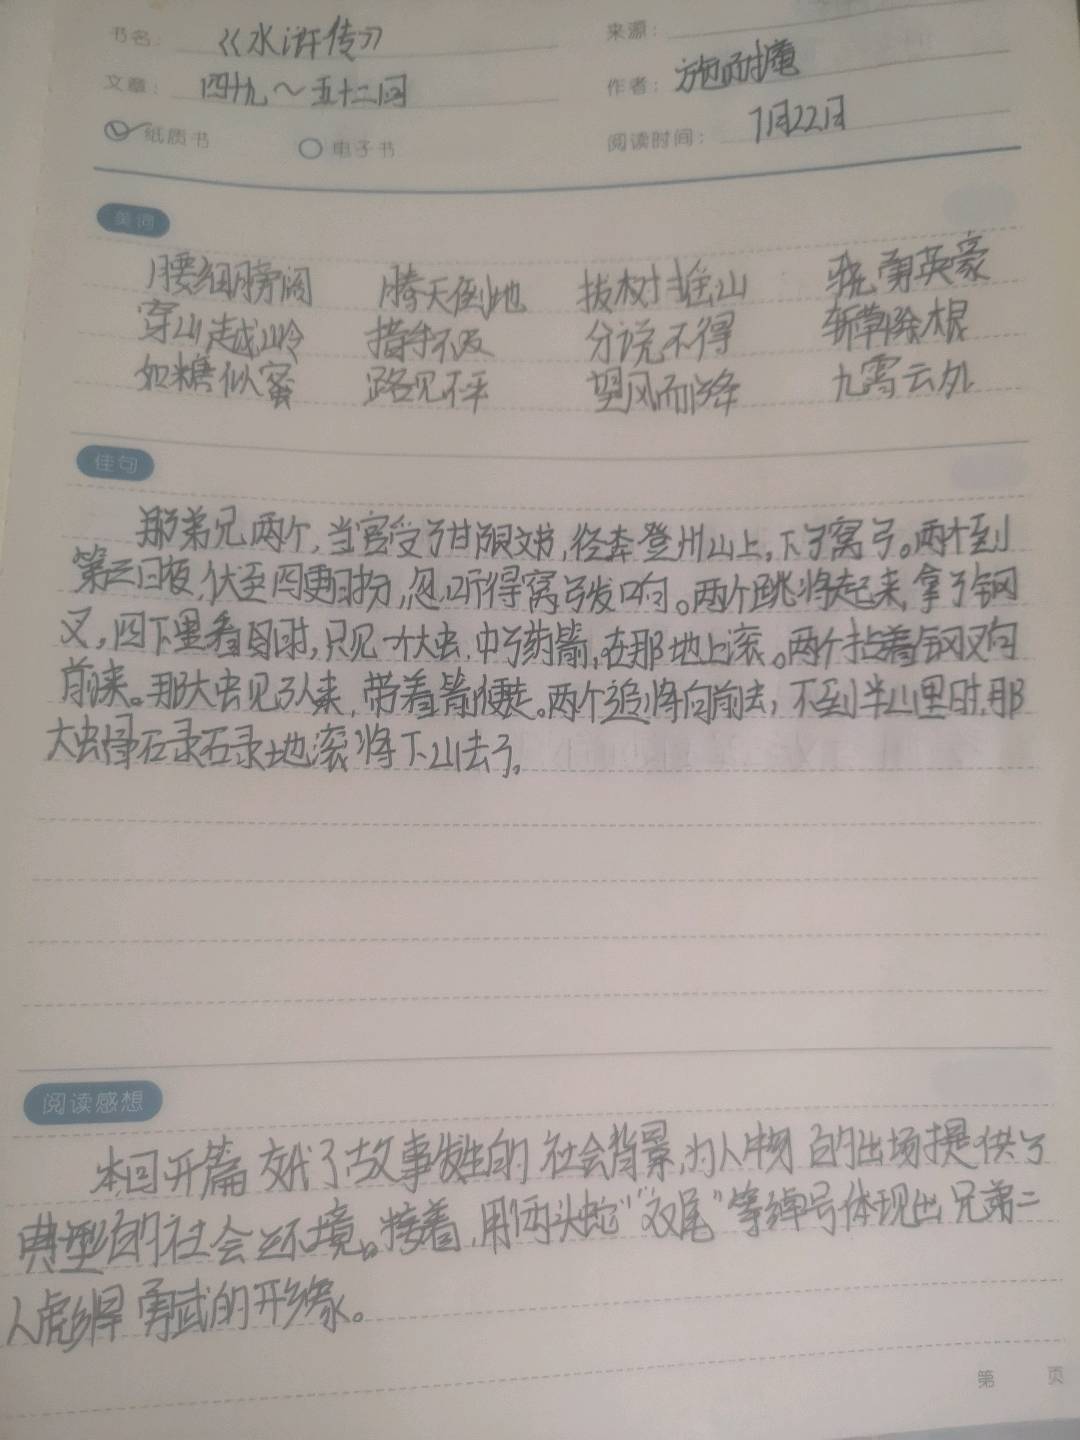 书名： 《水浒传》 来源：
文章： 四十九～五十二回 作者： 施耐庵
纸质书 电子书 阅读时间： 7月22日
美词
腰细膀阔 腾天倒地 拔树摇山 骁勇英豪
穿山越岭 措手不及 分说不得 斩草除根
如糖似蜜 路见不平 望风而降 九霄云外
佳句
那弟兄两个，当官受了甘限文书，径奔登州山上，下了窝弓。两个到
第三日夜，伏至四更时分，忽听得窝弓发响。两个跳将起来，拿了钢
叉，四下里看时，只见一个大虫，中了药箭，在那地上滚。两个拈着钢叉向
前来。那大虫见了人来，带着箭便走。两个追将向前去，不到半山里时，那
大虫骨碌碌地滚将下山去了。
阅读感想
本回开篇交代了故事发生的社会背景，为人物的出场提供了
典型的社会环境。接着，用“两头蛇”“双尾”等绰号体现出兄弟二
人彪悍勇武的形象。
第 页